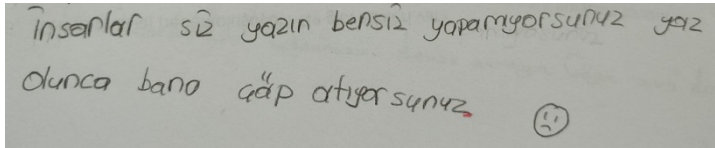 İnsanlar siz yazın bensiz yapamıyorsunuz yaz
olunca bana çöp atıyorsunuz.